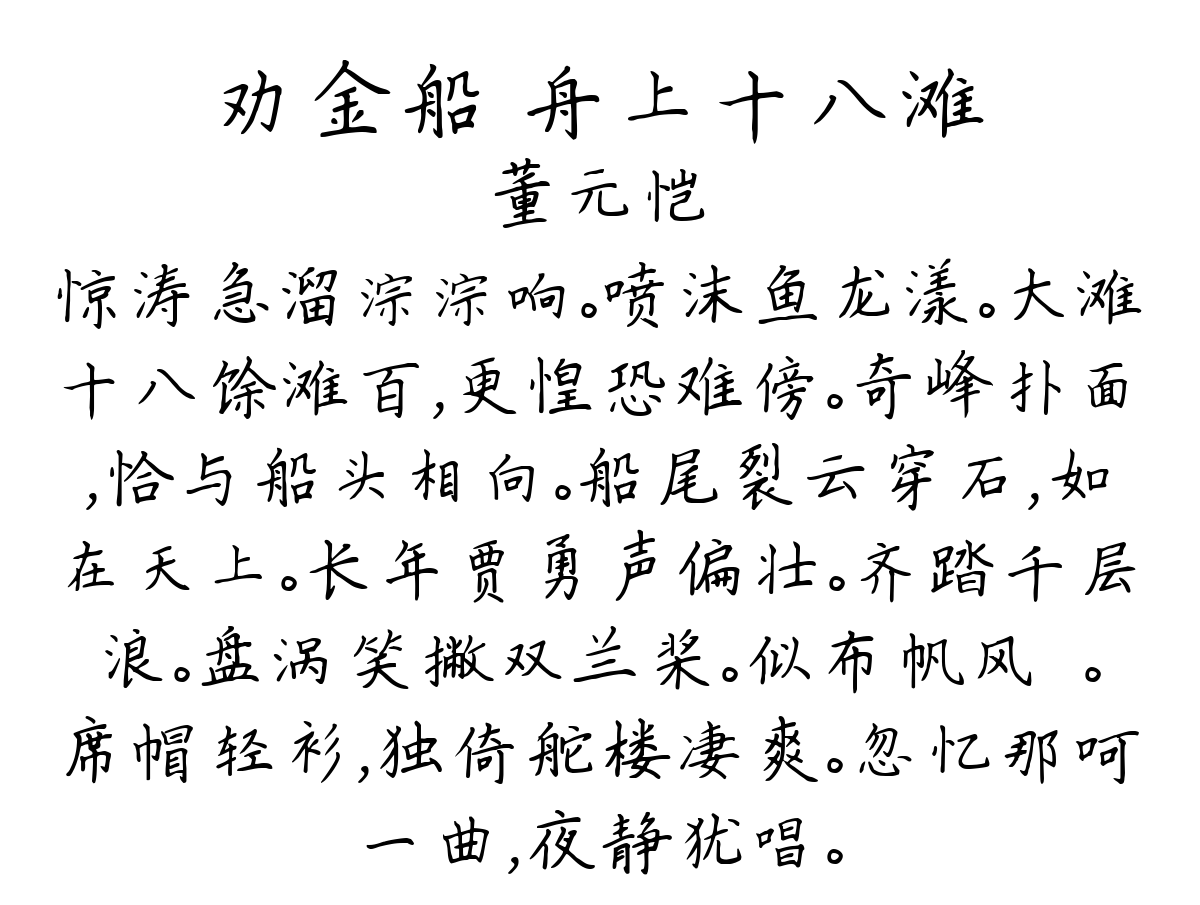 劝金船 舟上十八滩
董元恺
惊涛急溜淙淙响。喷沫鱼龙漾。大滩
十八馀滩百,更惶恐难傍。奇峰扑面
,恰与船头相向。船尾裂云穿石,如
在天上。长年贾勇声偏壮。齐踏千层
浪。盘涡笑撇双兰桨。似布帆风 。
席帽轻衫,独倚舵楼凄爽。忽忆那呵
一曲,夜静犹唱。